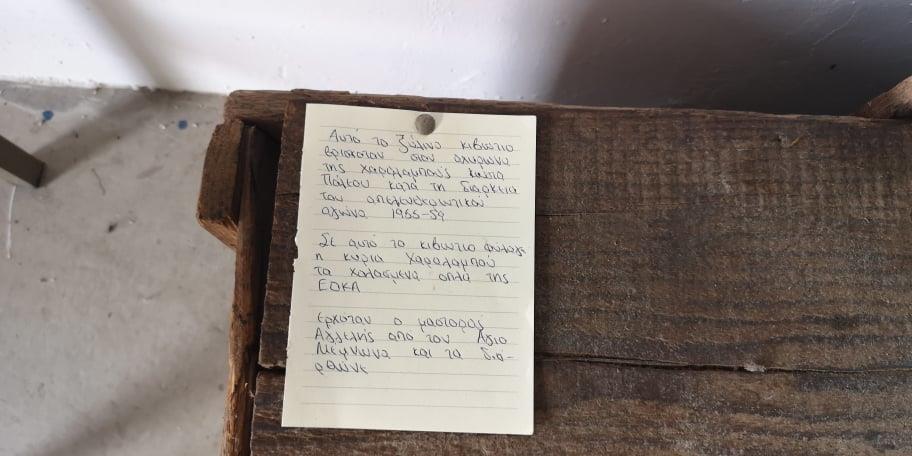 Αυτό το ξύλινο κιβώτιο
βρισκόταν στον αχυρώνα
της Χαραλαμπούς Κώστα
Πάλκου κατά τη διάρκεια
του απελευθερωτικού
αγώνα 1955-59
Σε αυτό το κιβώτιο φύλαγε
η κυρία Χαραλαμπού
τα χαλασμένα όπλα της
ΕΟΚΑ
Ερχόταν ο μάστορας
Αγγελής από τον Άγιο
Μέμνωνα και τα διό-
ρθωνε